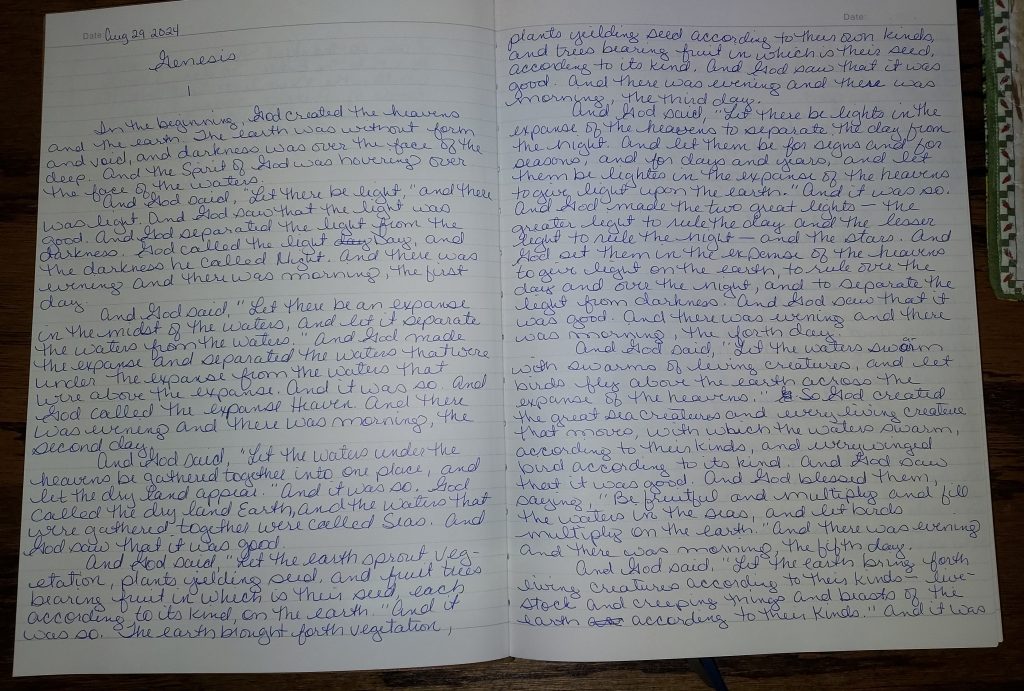 Date: Aug 29 2024
Genesis
1
In the beginning, God created the heavens
and the earth. The earth was without form
and void, and darkness was over the face of the
deep. And the Spirit of God was hovering over
the face of the waters.
And God said, "Let there be light," and there
was light. And God saw that the light was
good. And God separated the light from the
darkness. God called the light day Day, and
the darkness he called Night. And there was
evening and there was morning, the first
day.
And God said, "Let there be an expanse
in the midst of the waters, and let it separate
the waters from the waters." And God made
the expanse and separated the waters that were
under the expanse from the waters that
were above the expanse. And it was so. And
God called the expanse Heaven. And there
was evening and there was morning, the
second day.
And God said, "Let the waters under the
heavens be gathered together into one place, and
let the dry land appear." And it was so. God
called the dry land Earth, and the waters that
were gathered together were called Seas. And
God saw that it was good.
And God said, "Let the earth sprout veg-
etation, plants yielding seed, and fruit trees
bearing fruit in which is their seed, each
according to its kind, on the earth." And it
was so. The earth brought forth vegetation,
Date:
plants yielding seed according to their own kinds,
and trees bearing fruit in which is their seed,
according to its kind. And God saw that it was
good. And there was evening and there was
morning, the third day.
And God said, "Let there be lights in the
expanse of the heavens to separate the day from
the night. And let them be for signs and for
seasons, and for days and years, and let
them be lights in the expanse of the heavens
to give light upon the earth." And it was so.
And God made the two great lights — the
greater light to rule the day and the lesser
light to rule the night — and the stars. And
God set them in the expense of the heavens
to give light on the earth, to rule over the
day and over the night, and to separate the
light from darkness. And God saw that it
was good. And there was evening and there
was morning, the forth day.
And God said, "Let the waters swarm
with swarms of living creatures, and let
birds fly above the earth across the
expanse of the heavens." So God created
the great sea creatures and every living creature
that moves, with which the waters swarm,
according to their kinds, and every winged
bird according to its kind. And God saw
that it was good. And God blessed them,
saying, "Be fruitful and multiply and fill
the waters in the seas, and let birds
multiply on the earth." And there was evening
and there was morning, the fifth day.
And God said, "Let the earth bring forth
living creatures according to their kinds — live-
stock and creeping things and beasts of the
earth according to their kinds." And it was